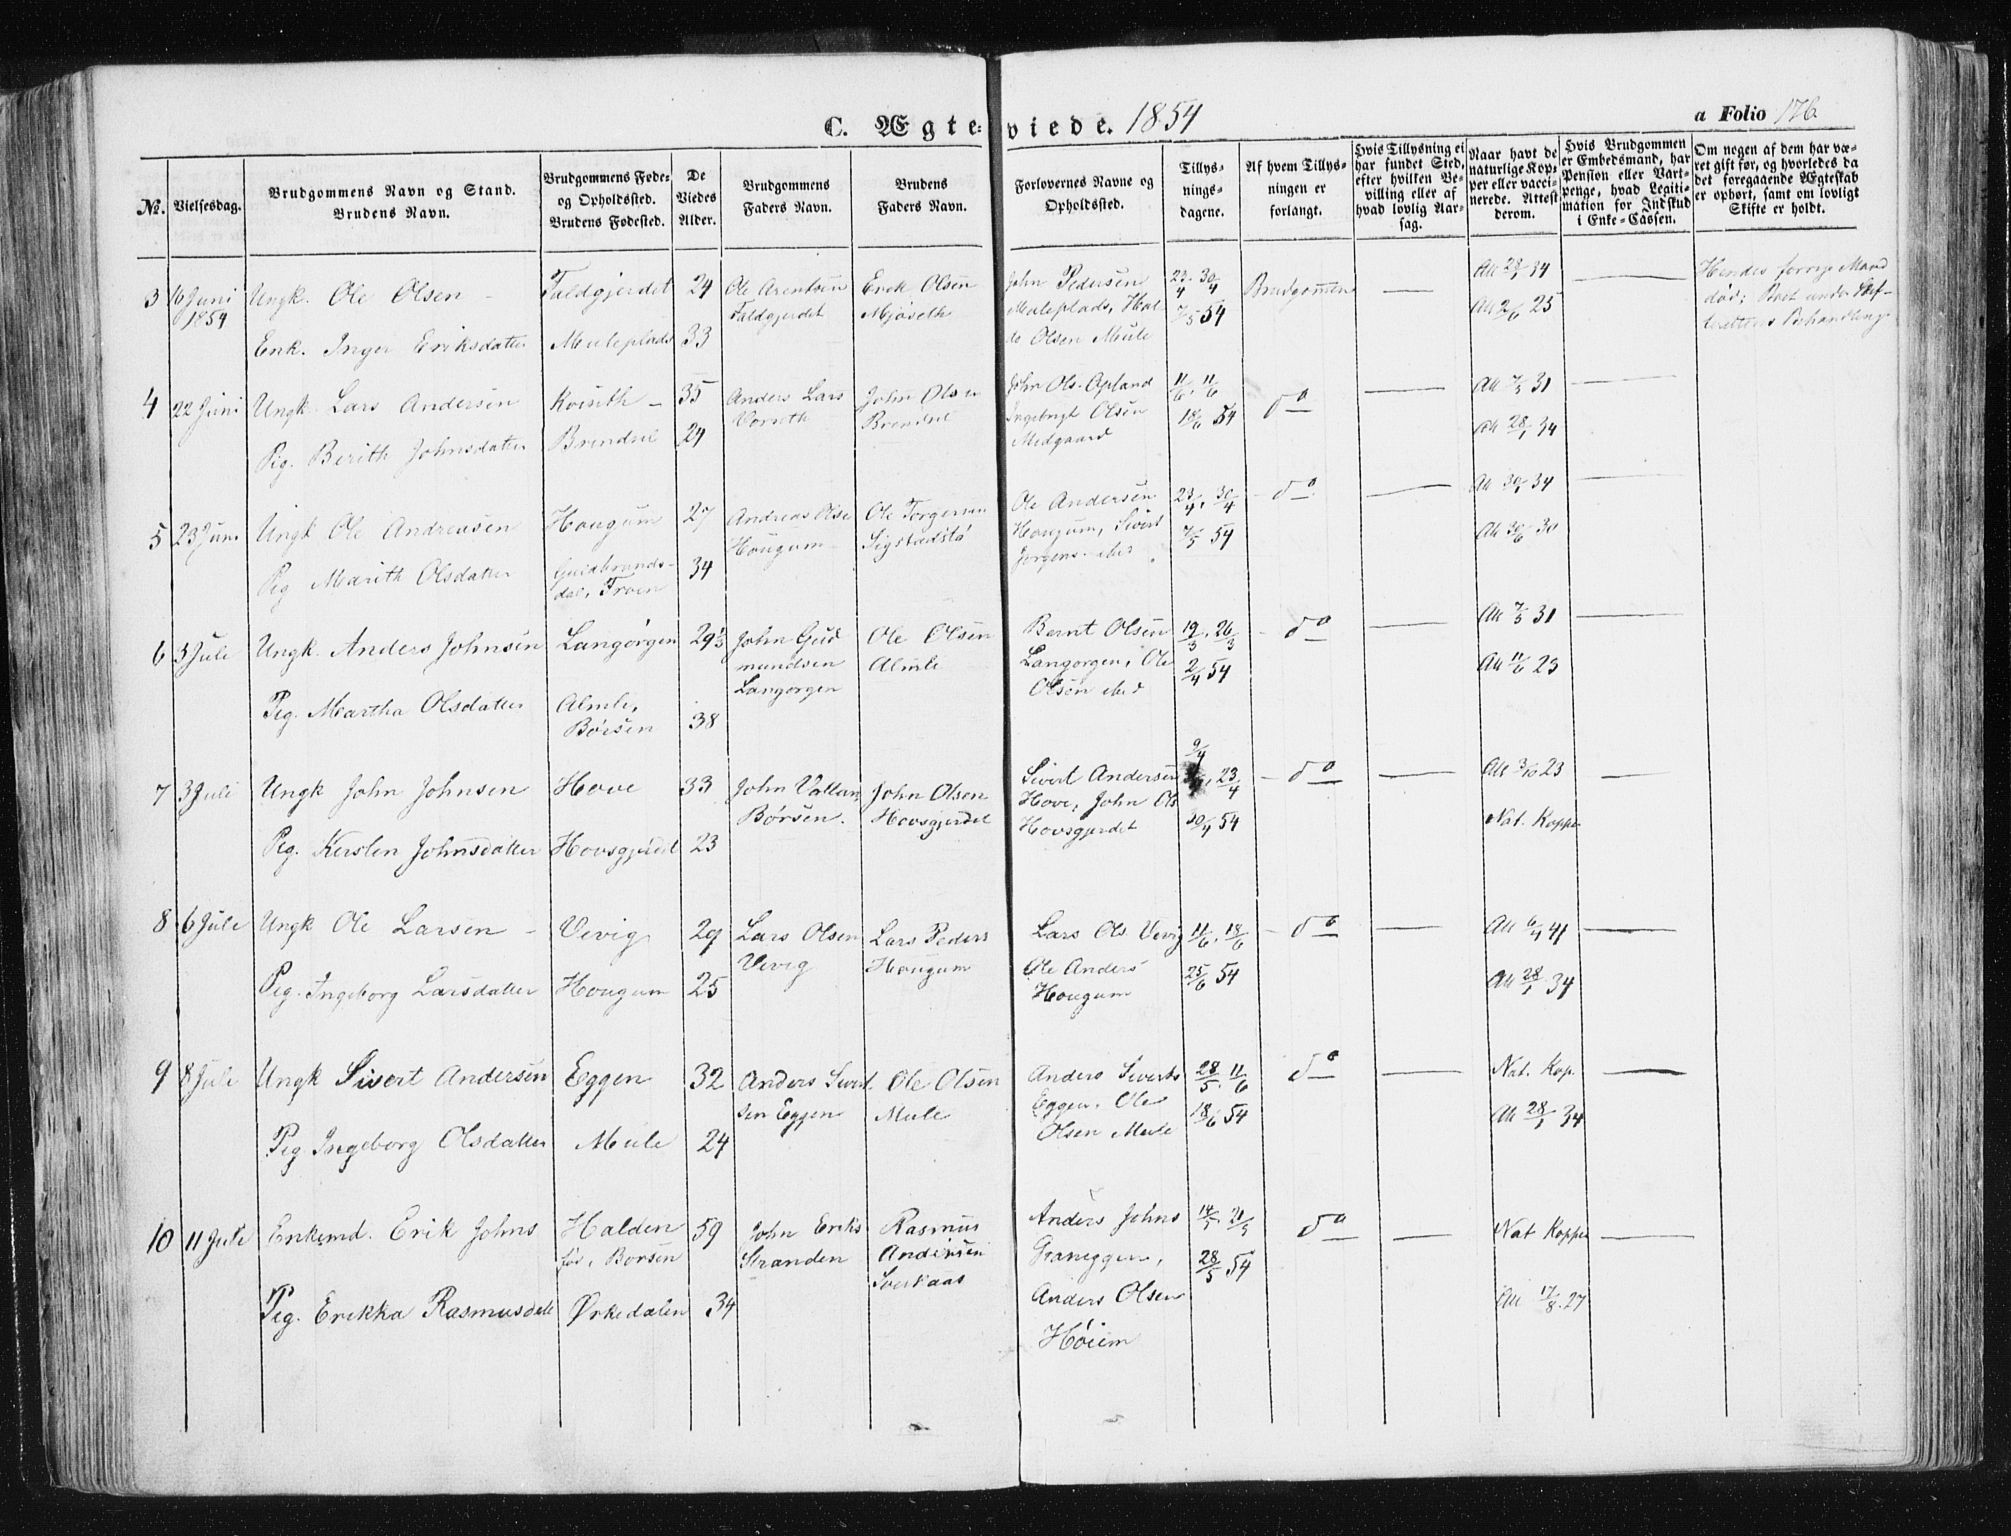 C. Ægte-viede. 1854
a Folio 176.
No.
Vielsesdag.
Brudgommens Navn og Stand.
Brudens Navn.
Brudgommens Føde-
og Opholdssted.
Brudens Fødested.
De
Viedes
Alder.
Brudgommens
Faders Navn.
Brudens
Faders Navn.
Forlovernes Navne og
Opholdssted.
Tillys-
nings-
dagene.
Af hvem Tillys-
ningen er
forlangt.
Hvis Tillysning ei
har fundet Sted,
efter hvilken Be-
villing eller af
hvad lovlig Aar-
sag.
Naar havt de
naturlige Kop-
per eller vacci-
nerede. Attest
derom.
Hvis Brudgommen
er Embedsmand, har
Pension eller Vart-
penge, hvad Legiti-
mation for Indskud
i Enke-Cassen.
Om nogen af dem har væ-
ret gift før, og hvorledes da
det foregaaende Ægteskab
er ophørt, samt om lovligt
Skifte er holdt.
3
16 Juni
1854
Ungk. Ole Olsen
Enk. Inger Eriksdatter
Faldgjerdet
Muleplads
24
33
Ole Arentsen
Faldgjerdet
Erick Olsen
Mjøseth
John Pedersen
Muleplads, Hal
do Olsen Mule
23/4. 30/4
7/5 54
Brudgommen
Att 28/1 34
Att 2/6 25
Hendes forrige Mand
død; Boet under Skif-
terettens Behandling
4
22 Juni
Ungk. Lars Andersen
Pig. Berith Johnsdatter
Brendsel
35
24
Anders Lars
John Olsen
Brendsel
John Ols. Opland
Ingebrigt Olsen
Medgaard
11/6. 11/6
18/6 54
do
Att 7/3 31
Att 28/1 34
5
23 Juni
Ungk Ole Andreasen
Pig Marith Olsdatter
Hougum
Guldbrands-
dal, Troen
27
34
Andreas Olse
Hougum
Ole Torgersen
Sigstadstø
Ole Andersen
Hougum, Sivert
Jørgens. ibid
23/4. 30/4
7/5 54
do
Att 30/1 34
Att 30/6 30
6
3 Juli
Ungk. Anders Johnsen
Pig. Martha Olsdatter
Langørgen
Almli,
Børsen
29 1/2
38
John Gud
mundsen
Langørgen
Ole Olsen
Almli
Bernt Olsen
Langørgen, Ole
Olsen ibid
19/3. 26/3
2/4 54
do
Att 7/3 31
Att 11/6 23
7
3 Juli
Ungk John Johnsen
Pig. Kersten Johnsdatter
Hove
Hovsgjerdet
33
23
John Vollan
Børsen.
John Olsen
Hovsgjerdet
Sivert Andersen
Hove, John Ols
Hovsgjerdet
9/4
23/4
30/4 54
do
Att 3/10 23
Nat. Kopper
8
6 Juli
Ungk Ole Larsen
Pig. Ingeborg Larsdatter
Vevig
Hougum
29
25
Lars Olsen
Vevig
Lars Peders
Hougum
Lars Ols. Vevig
Ole Anders
Hougum
11/6. 18/6
25/6 54
do
Att 6/4 41
Att 28/1 34
9
8 Juli
Ungk Sivert Andersen
Pig. Ingeborg Olsdatter
Eggen
Mule
32
24
Anders Sivert
sen Eggen
Ole Olsen
Mule
Anders Siverts
Eggen. Ole
Olsen Mule
28/5. 11/6
18/6 54
do
Nat. Kop.
Att 28/1 34
10
11 Juli
Enkemd. Erik Johns
Pig. Erikka Rasmusdatt
Halden
fød, Børsen
Ørkedalen
59
34
John Eriks
Stranden
Rasmus
Andersen
Anders Johns
Graneggen,
Anders Olsen
Høiem
14/5. 21/5
28/5 54
do
Nat Kopper
Att 17/8. 27